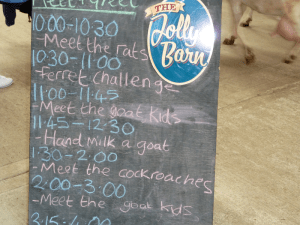 Meet & Greet
THE
Jolly
Barn
10:00-10:30
-Meet the rats
10:30-11:00
-Ferret Challenge
11:00-11:45
-Meet the Goat Kids
11:45-12:30
-Hand Milk a goat
1:30-2:00
-Meet the cockroaches
2:00-3:00
-Meet the goat kids
3:15-4:00